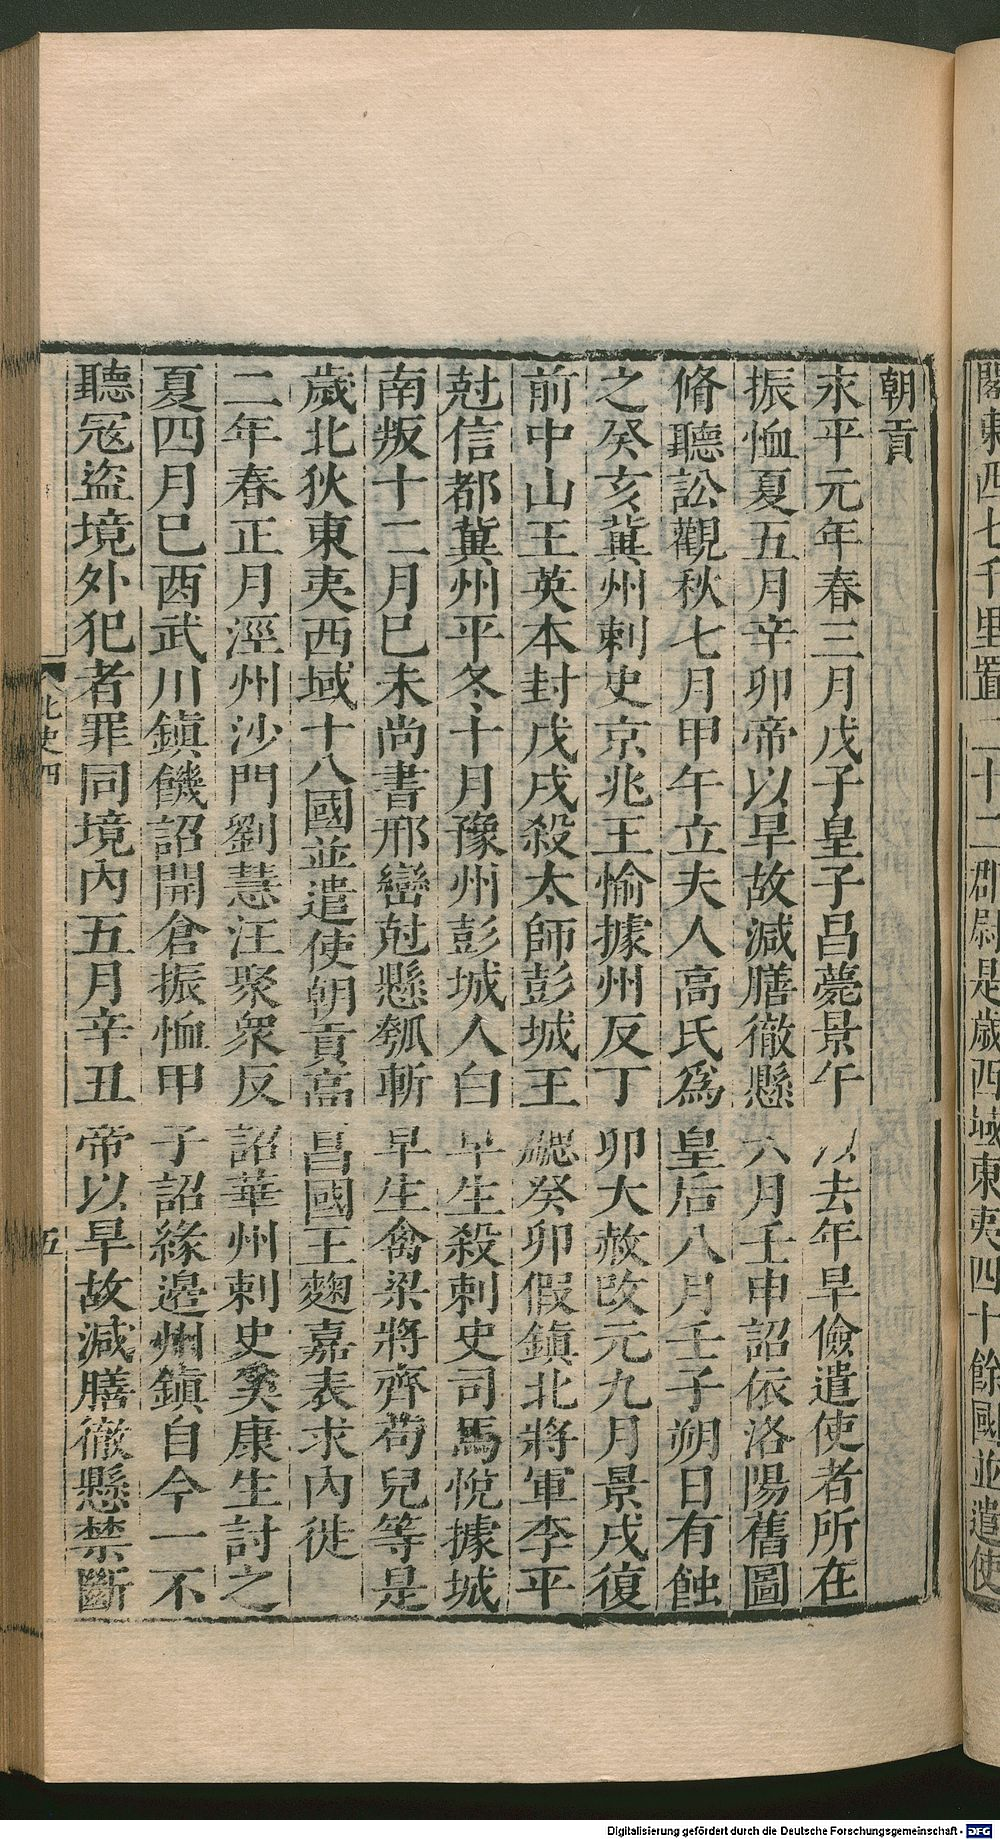 閣東西七千里置二十二郡尉是歲西域東夷四十餘國並遣使
朝貢
永平元年春三月戊子皇子昌薨景午以去年旱儉遣使者所在
振恤夏五月辛卯帝以旱故減膳徹懸六月壬申詔依洛陽舊圖
脩聽訟觀秋七月甲午立夫人高氏爲皇后八月壬子朔日有蝕
之癸亥冀州刺史京兆王愉據州反丁卯大赦改元九月景戌復
前中山王英本封戊戌殺太師彭城王勰癸卯假鎮北將軍李平
尅信都冀州平冬十月豫州彭城人白早生殺刺史司馬悅據城
南叛十二月巳未尚書邢巒尅懸瓠斬早生禽梁將齊苟兒等是
歲北狄東夷西域十八國並遣使朝貢高昌國王麴嘉表求內徙
二年春正月涇州沙門劉慧汪聚衆反詔華州刺史奚康生討之
夏四月巳酉武川鎮饑詔開倉振恤甲子詔緣邊州鎮自今一不
聽寇盜境外犯者罪同境內五月辛丑帝以旱故減膳徹懸禁斷
北史四
五
Digitalisierung gefördert durch die Deutsche Forschungsgemeinschaft - DFG